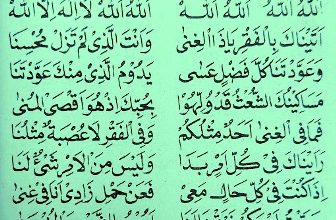 اَللهُ اَللهُ اَللهُ اَللهْ اَللهُ اَللهُ لَا اِلٰهَ اِلَّا اللهْ
اَتَيْنَاكَ بِالْفَقْرِ يَاذَا الْغِنٰى وَاَنْتَ الَّذِيْ لَمْ تَزَلْ مُحْسِنَا
وَعَوَّدْتَنَا كُلَّ فَضْلٍ عَسٰى يَدُوْمُ الَّذِيْ مِنْكَ عَوَّدْتَنَا
مَسَاكِيْنُكَ الشُّعْثُ قَدْ وُلِّهُوْا بِحُبِّكَ اِذْ هُوَ اَقْصَى الْمُنٰى
فَمَا فِى الْغِنٰى اَحَدٌ مِثْلُكُمْ وَفِى الْفَقْرِ لَا عُصْبَةٌ مِثْلُنَا
رَاَيْنَاكَ فِيْ كُلِّ اَمْرٍ بَدَا وَلَيْسَ مِنَ الْاَمْرِ شَيْءٌ لَنَا
اِذَا كُنْتَ فِيْ كُلِّ حَالٍ مَعِيْ فَعَنْ حَمْلِ زَادِيْ اَنَا فِيْ غِنٰى